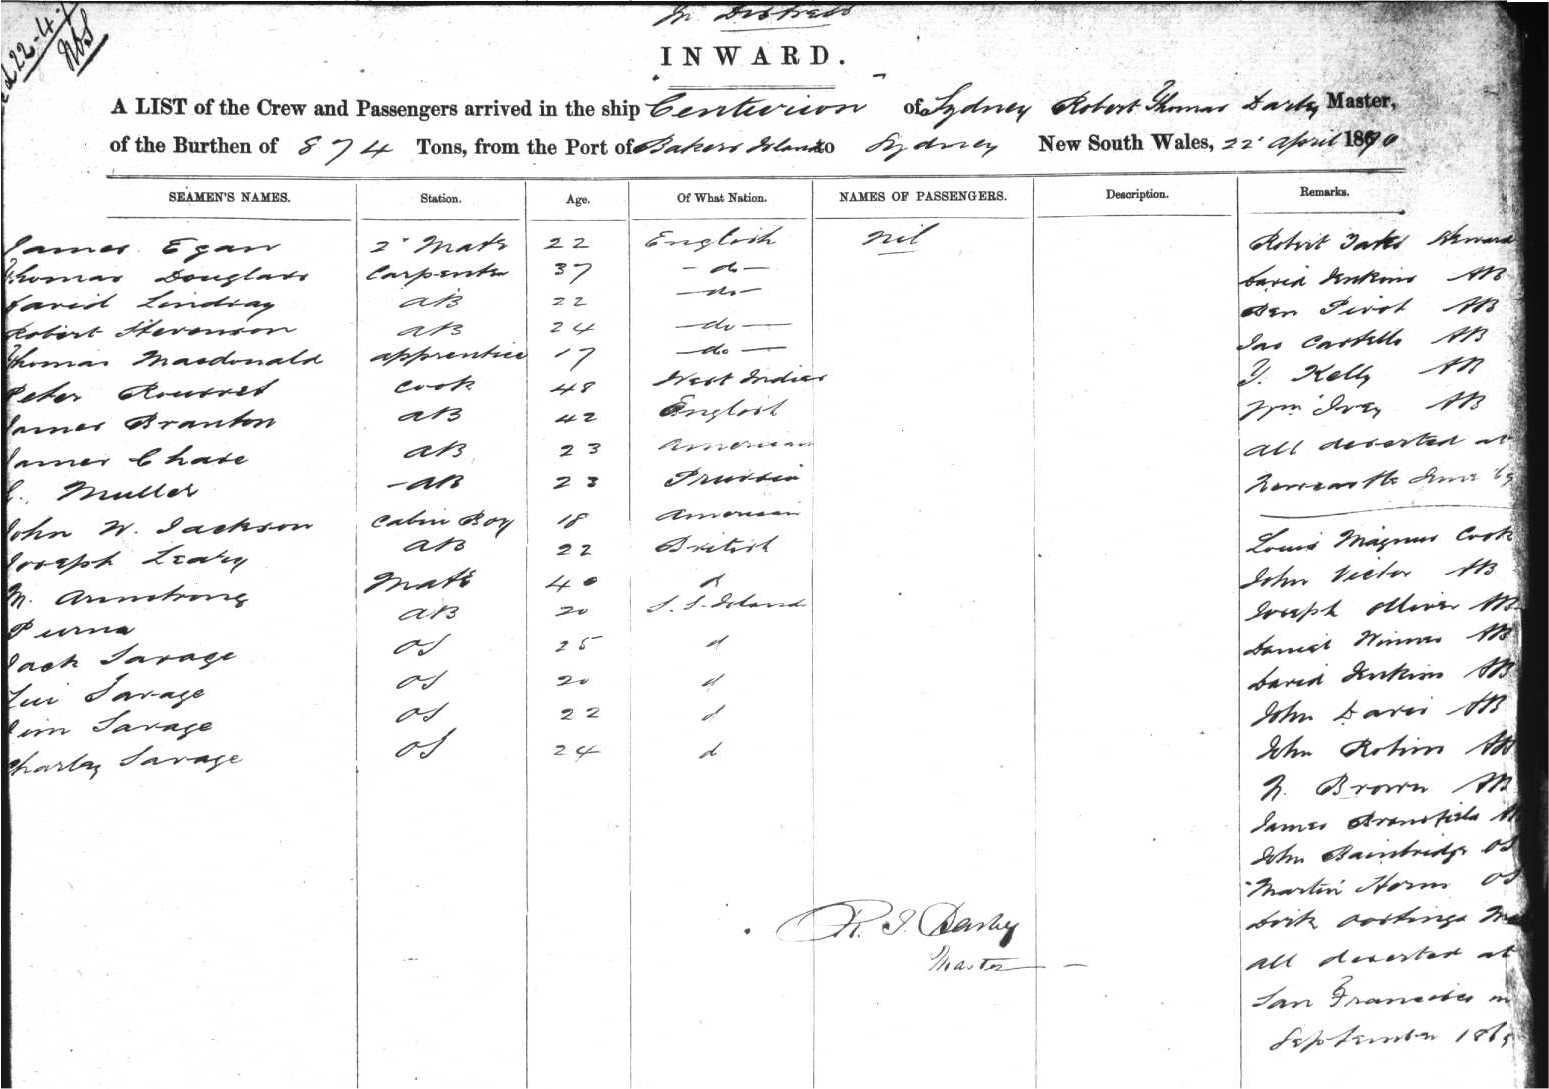 In Distress
22-4-7
INWARD.
A LIST of the Crew and Passengers arrived in the ship Centurion of Sydney Robert Thomas Darby Master,
of the Burthen of 874 Tons, from the Port of Bakers Island to Sydney New South Wales, 22 April 1870
SEAMEN'S NAMES. Station. Age. Of What Nation. NAMES OF PASSENGERS. Description. Remarks.
James Egan 2 Mate 22 English Nil
Thomas Douglass Carpenter 37 - do -
David Lindsay AB 22 - do -
Robert Stevenson AB 24 - do -
Thomas Macdonald apprentice 17 - do -
Peter Cook 48 West Indies
James Branton AB 42 English
James Chase AB 23 American
Muller AB 23 Prussia
John W. Jackson Cabin Boy 18 American
Joseph Leary AB 22 British
M. Armstrong Mate 40 d
Purna AB 20 S. S. Island
Jack Savage OS 25 d
Savage OS 20 d
Jim Savage OS 22 d
Charley Savage OS 24 d
Robert Steward
David Jenkins AB
Ben Pivot AB
Jas Castello AB
Kelly AB
Wm Ivey AB
all deserted at
Newcastle June 69
Louis Magnus Cook
John Victor AB
Joseph Olliver AB
Daniel Winnes AB
David Jenkins AB
John Davis AB
John Robins AB
N. Brown AB
James Bransfield
John Bainbridge OS
Martin Horn OS
Dirk Oostinga
all deserted at
San Francisco in
September 1869
R. T. Darby
Master